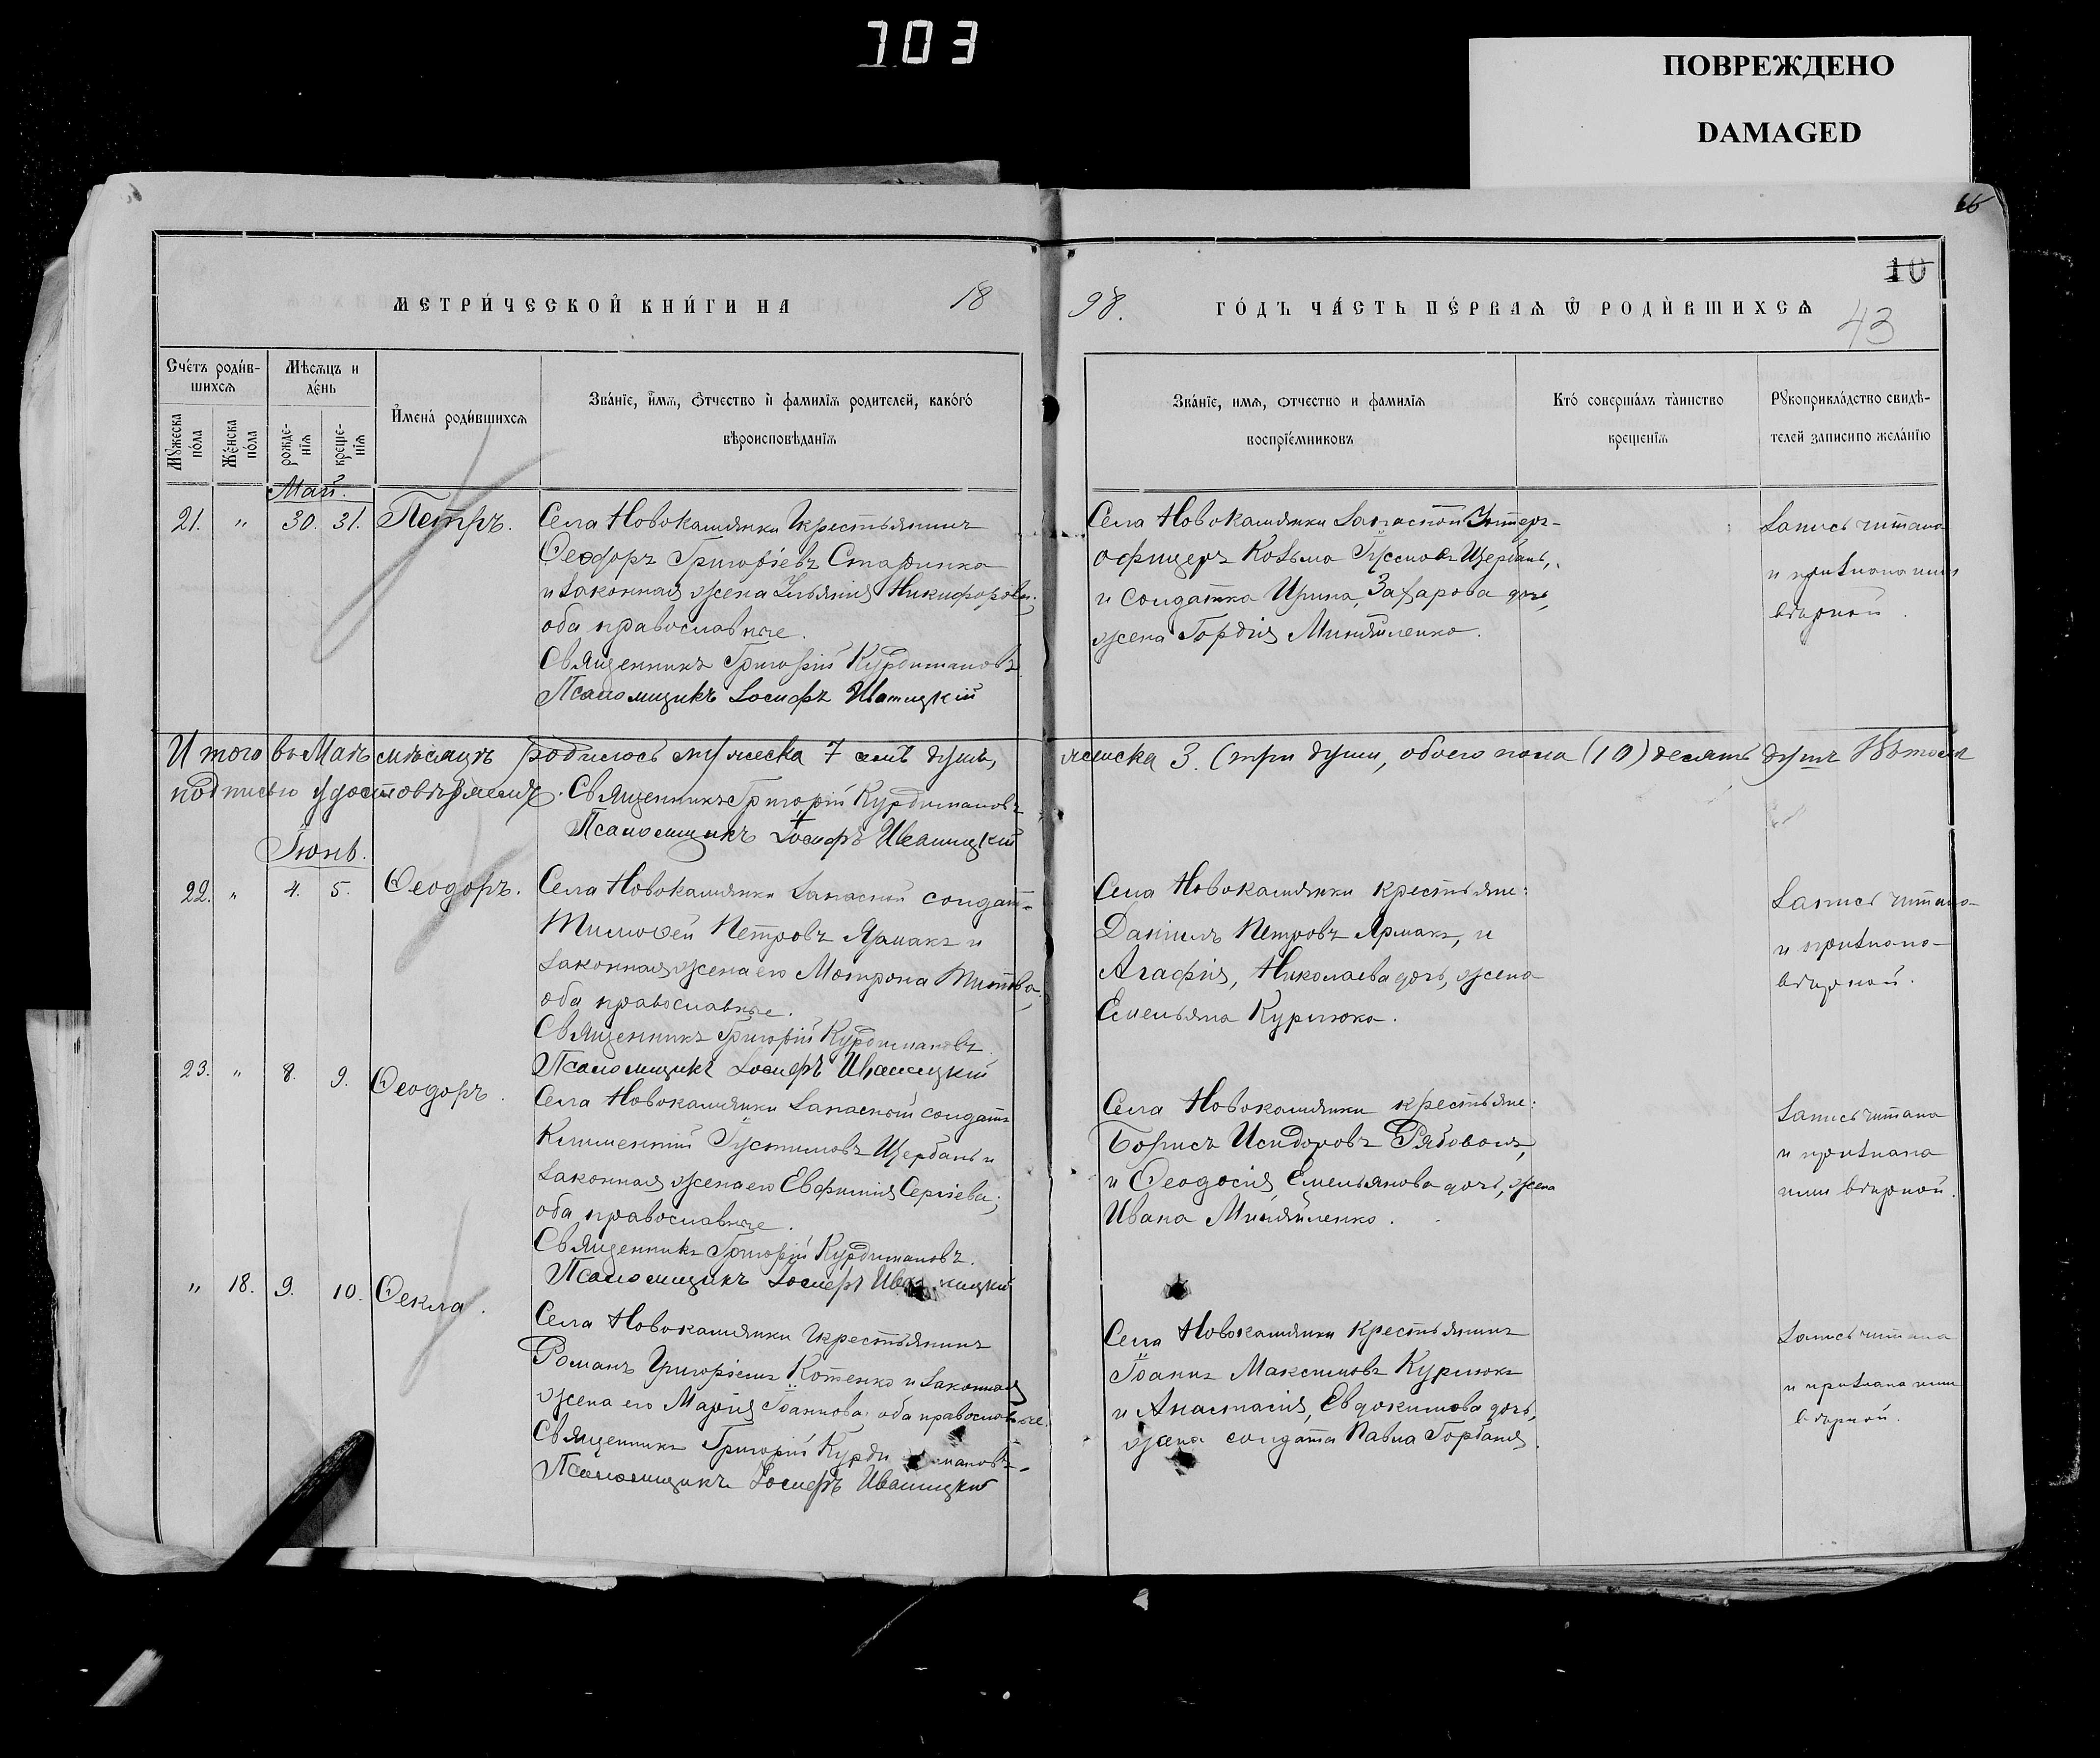 703
ПОВРЕЖДЕНО
DAMAGED
66
10
МЕТРИ́ЧЕСКОЙ КНИ́ГИ НА 18
98. ГО́ДЪ ЧА́СТЬ ПЕ́РВАѦ Ѿ РОДИ́ВШИХСѦ
43
Сче́тъ роди́в-
шихсѧ
Мѣсѧцъ и
де́нь
Мꙋжеска
по́ла
Же́нска
по́ла
рожде-
нїѧ
креще-
нїѧ
Имена́ роди́вшихсѧ
Зва́нїе, и́мѧ, о́тчество и фамилїѧ родителей, како́гѡ
вѣроисповѣданїѧ
Зва́нїе, имѧ, отчество и фамилїѧ
воспрїе́мниковъ
Кто́ соверша́лъ та́инство
крещенїѧ
Рꙋкоприкла́дство свидѣ-
телей записи по жела́нїю
Май.
21. " 30. 31. Петръ.
Села Новокамянки крестьянинъ
Ѳеодоръ Григоріевъ Старинка
и законная жена Ульянія Никифорова;
оба православные.
Священникъ Григорій Курдимановъ
Псаломщикъ Іосифъ Иваницкій
Села Новокамянки Запасной Унтеръ-
офицеръ Козьма Щербань,
и солдатка Ирина, Захарова дочь,
жена Гордія Миняйленко.
Запись читана
и признана ими
вѣрной.
Итого въ Маѣ мѣсяцѣ родилось мужеска 7 семь душъ,
женска 3. (три души, обоего пола (10) десять душъ
подписью удостовѣряемъ. Священникъ Григорій Курдимановъ
Псаломщикъ Іосифъ Иваницкій
Іюнь.
22. " 4. 5. Ѳеодоръ.
Села Новокамянки Запасной солдатъ
Тимоѳей Петровъ Ярмакъ и
законная жена его Мотрона Титова,
оба православные.
Священникъ Григорій Курдимановъ
Псаломщикъ Іосифъ Иваницкій
Села Новокамянки крестьяне:
Даніилъ Петровъ Ярмакъ, и
Агафія, Николаева дочь, жена
Емельяна Курлюка.
Запись читана
и признана
вѣрной.
23. " 8. 9. Ѳеодоръ.
Села Новокамянки Запасной солдатъ
Климентій Іустиновъ Щербань и
законная жена его Евфимія Сергіева;
оба православные.
Священникъ Григорій Курдимановъ.
Псаломщикъ Іосифъ Иваницкій
Села Новокамянки крестьяне:
Борисъ Исидоровъ Рябоволъ,
и Ѳеодосія, Емельянова дочь, жена
Ивана Миняйленко.
Запись читана
и признана
ими вѣрной.
" 18. 9. 10. Ѳекла.
Села Новокамянки крестьянинъ
Романъ Григоріевъ Котенко и законная
жена его Марія Іоаннова оба православные.
Священникъ Григорій Курдимановъ
Псаломщикъ Іосифъ Иваницкій
Села Новокамянки крестьянинъ
Іоаннъ Максимовъ Курлюкъ
и Анастасія, Евдокимова дочь,
жена солдата Павла Горбаня.
Запись читана
и признана ими
вѣрной.